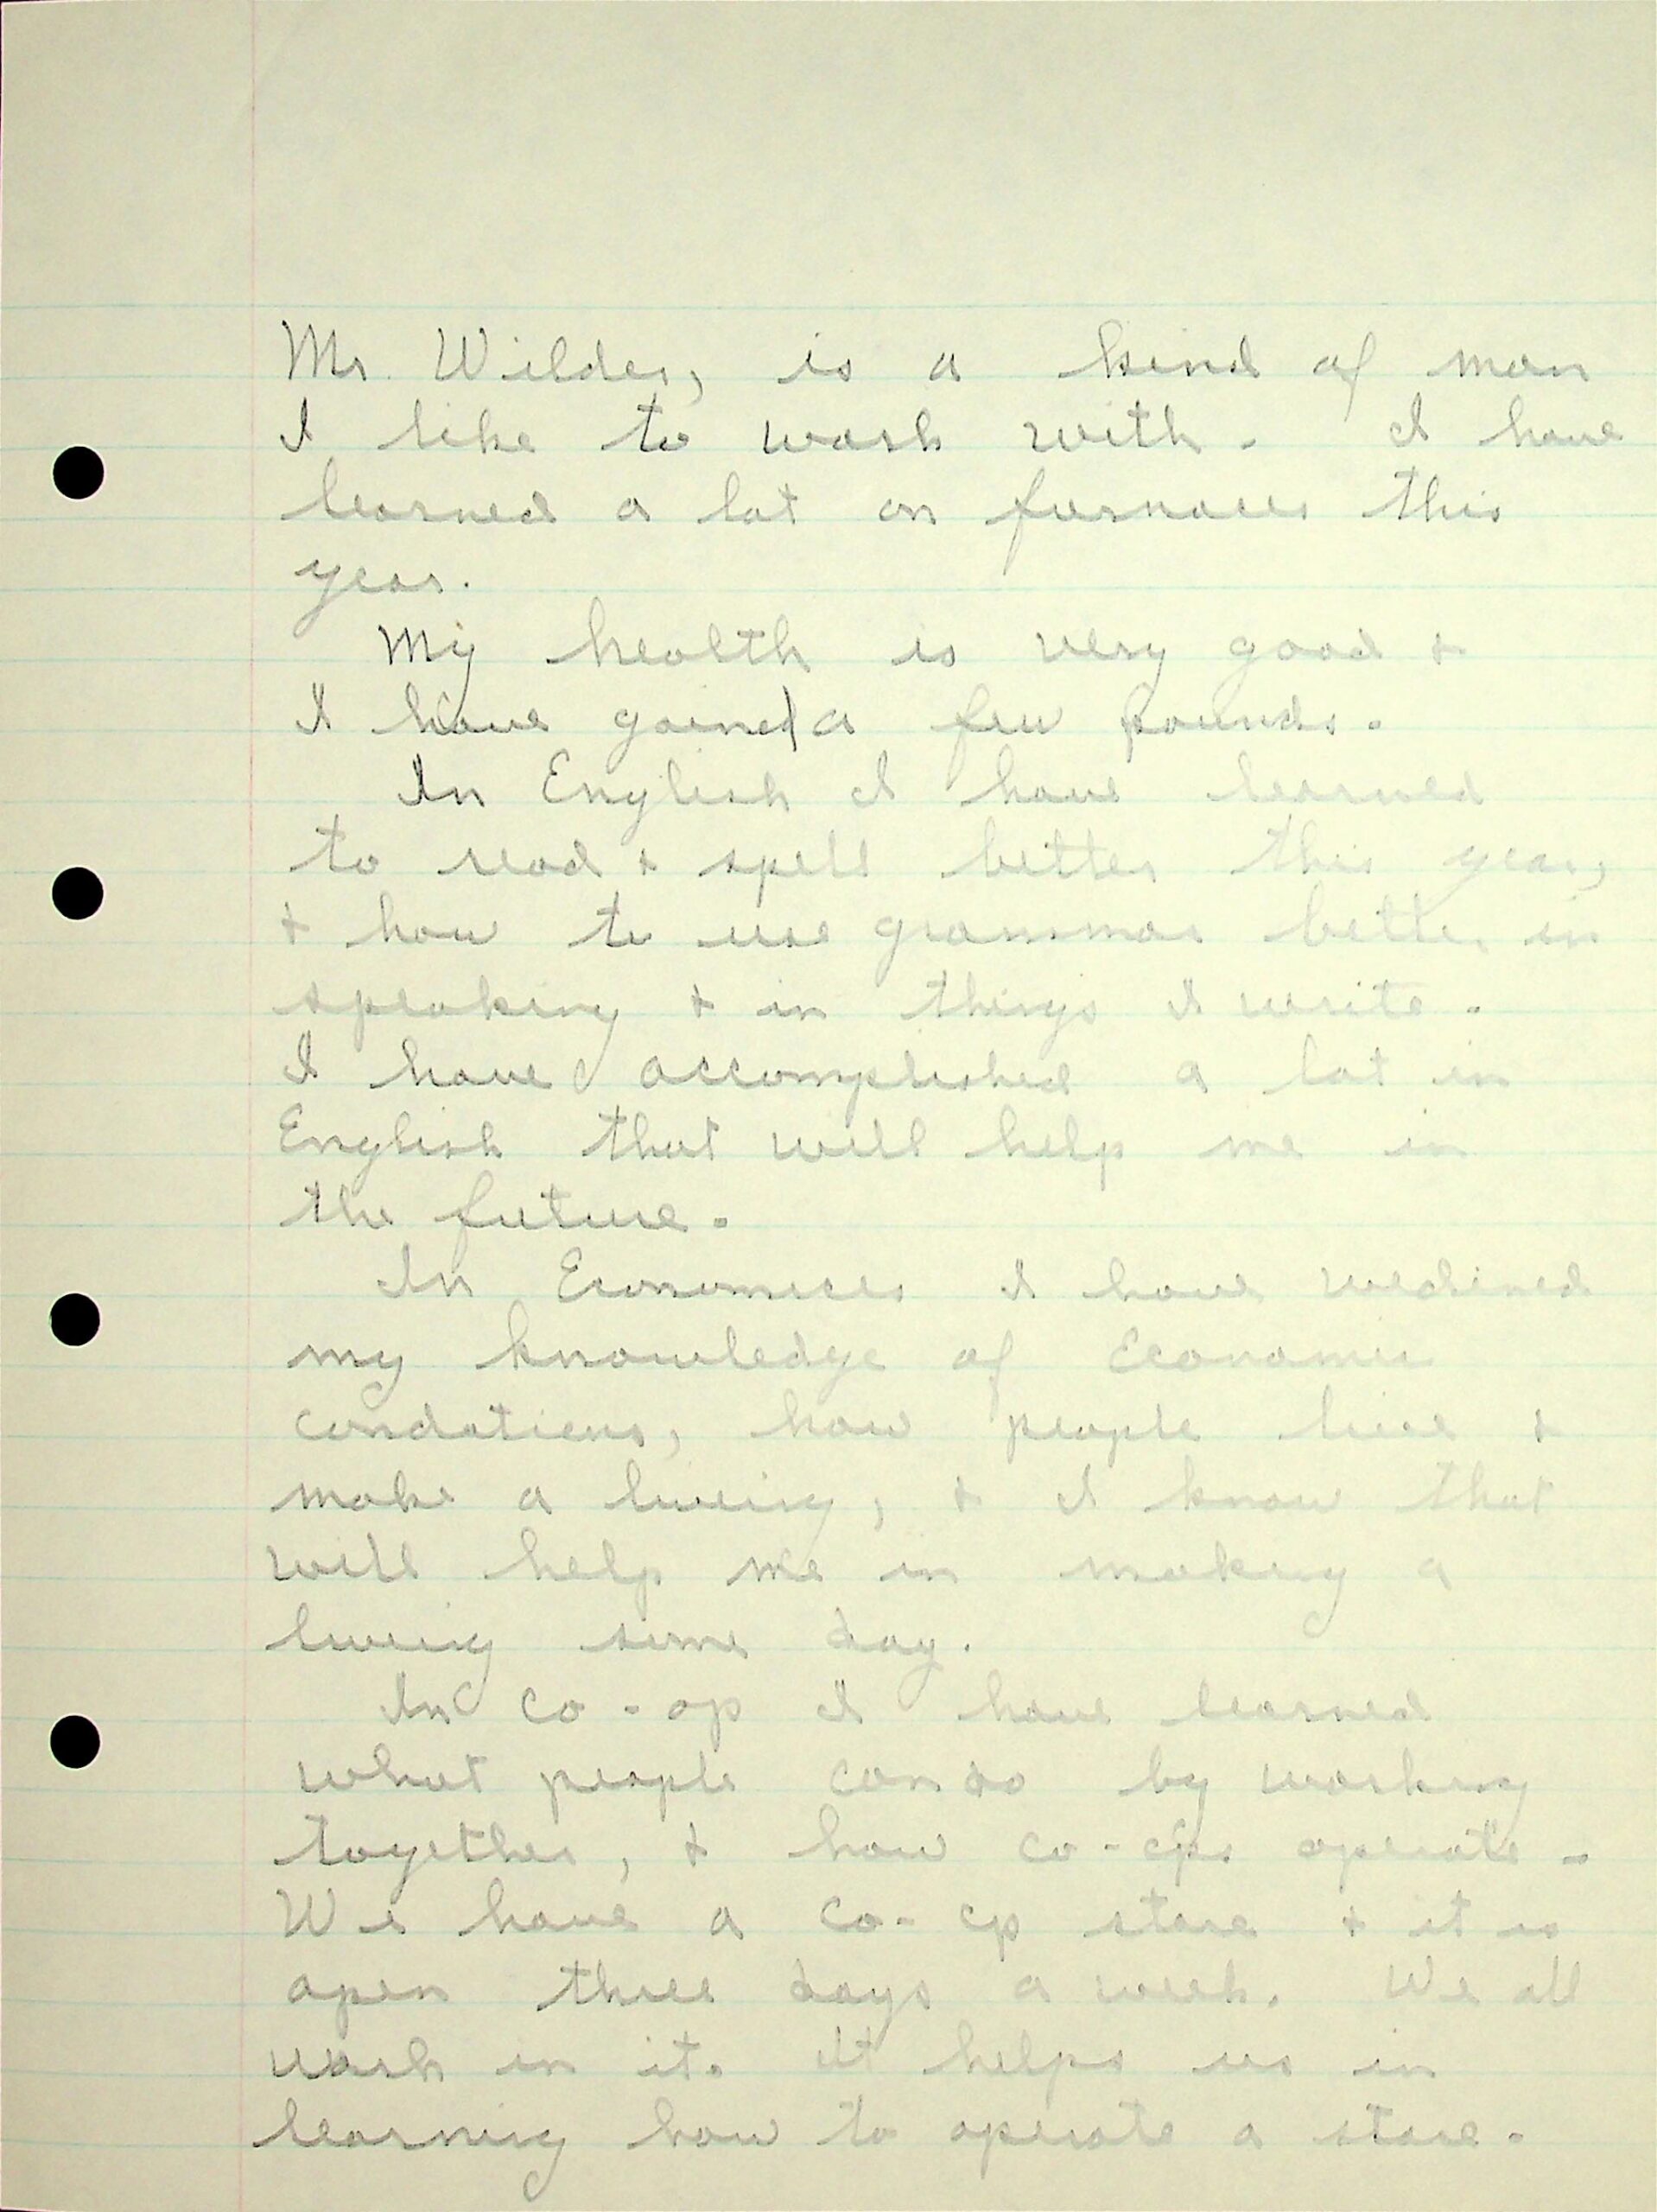 Mr. Wilder, is a kind of man
I like to work with. I have
learned a lot on furnaces this
year.
My health is very good &
I have gained a few pounds.
In English I have learned
to read & spell better this year,
& how to use grammar better in
speaking & in things I write.
I have accomplished a lot in
English that will help me in
the future.
In Economices I have
my knowledge of Economic
condations, how people live &
make a liveing, & I know that
will help me in making a
liveing some day.
In co-op I have learned
what people can do by working
together, & how co-ops operate.
We have a co-op store & it is
open three days a week. We all
work in it. It helps us in
learning how to operate a store.